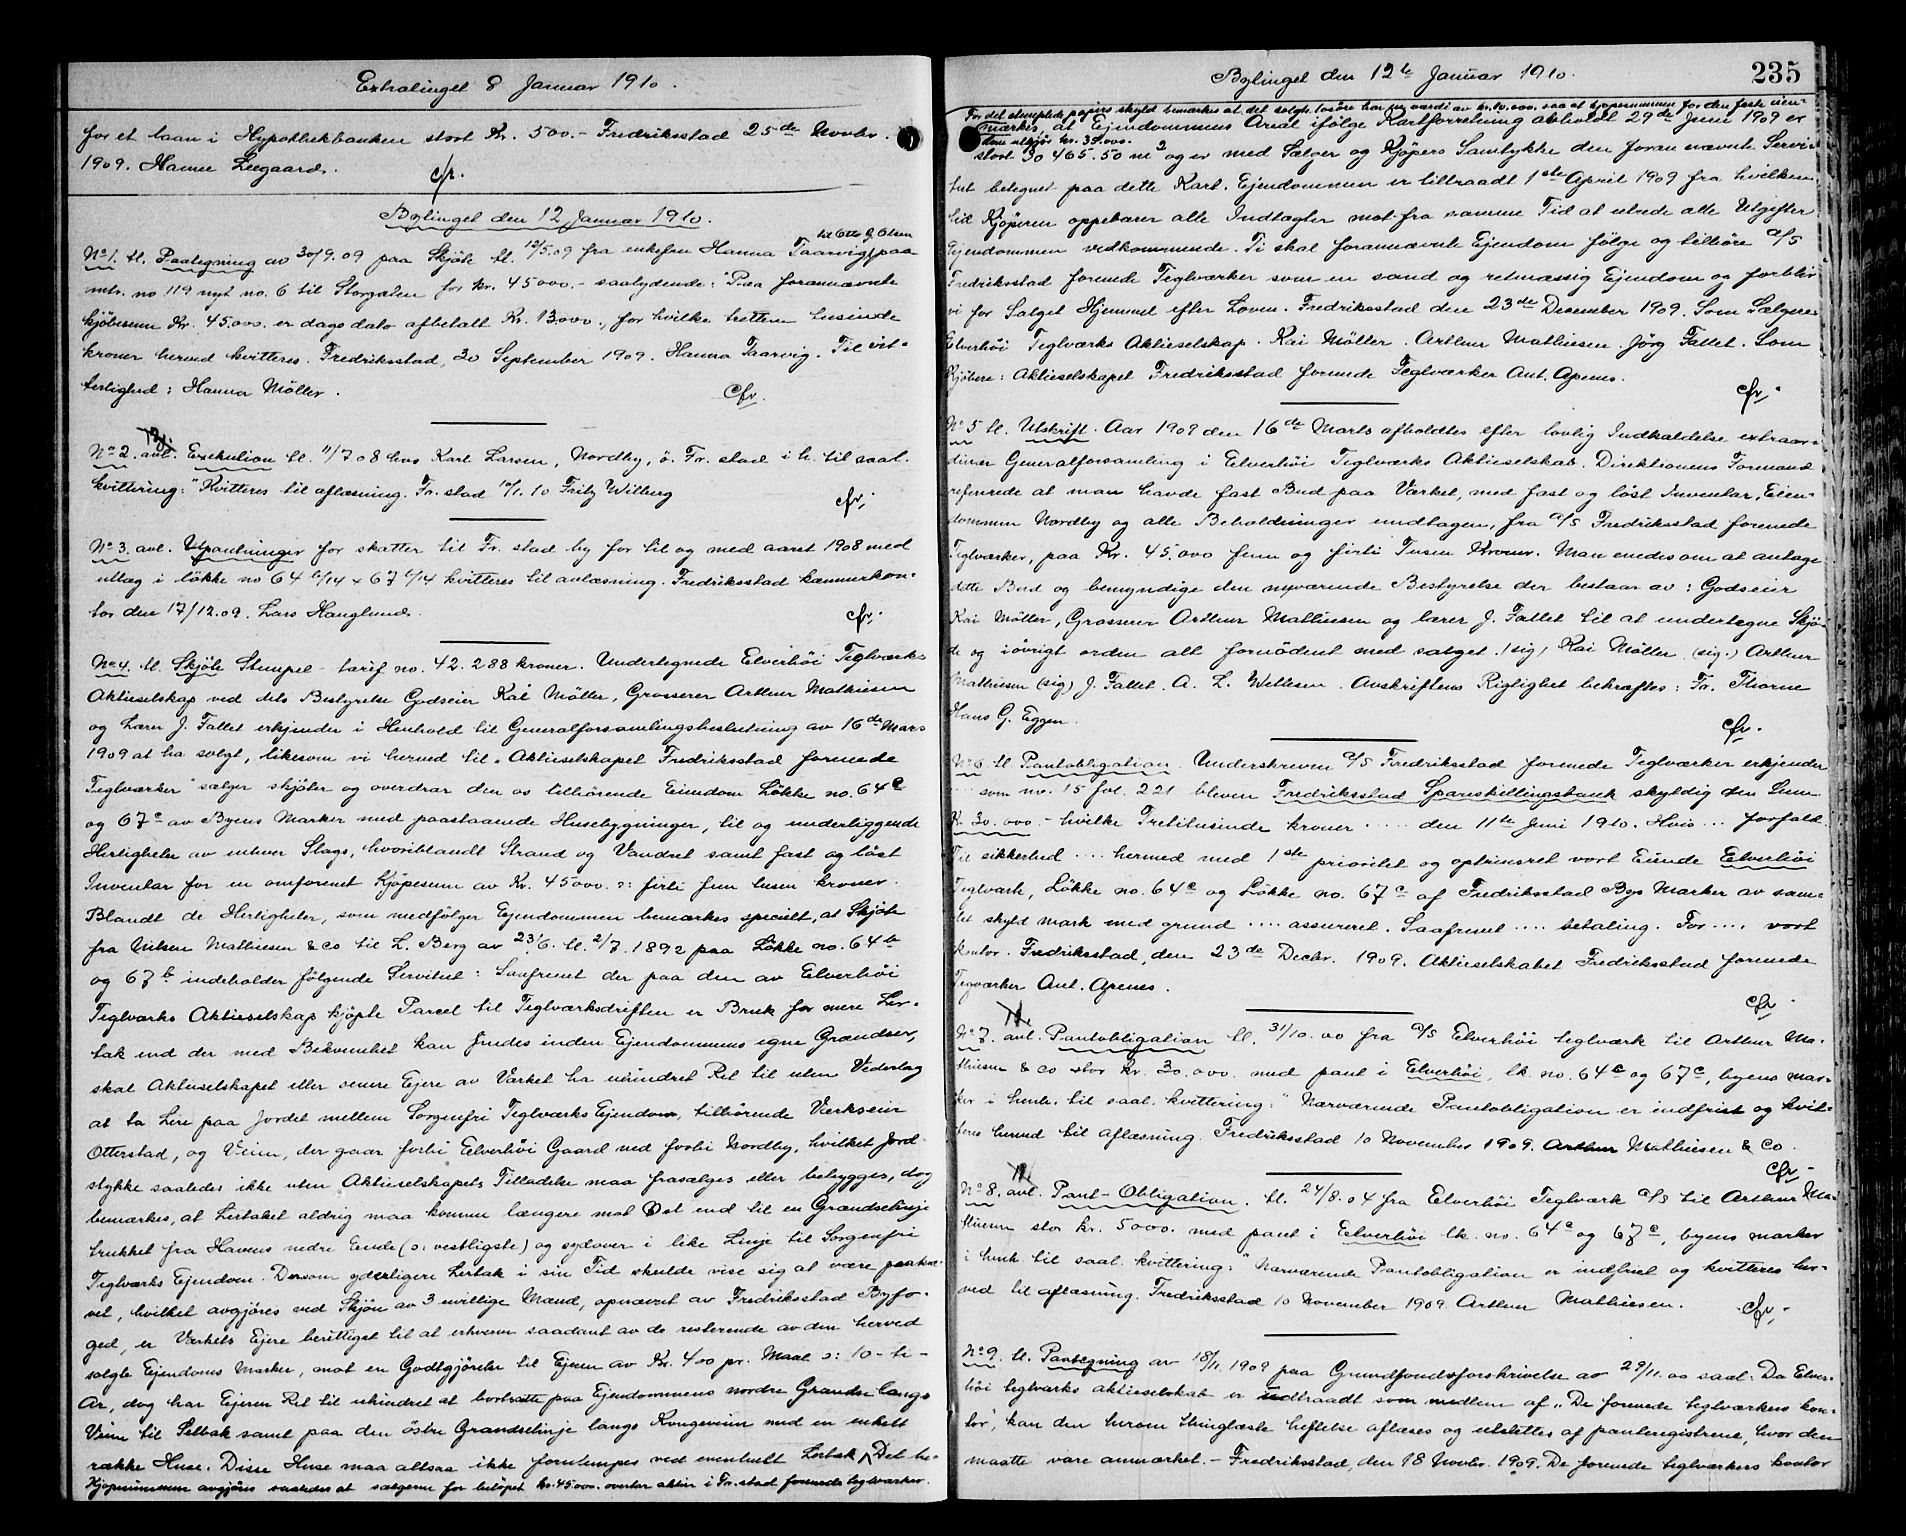 Extratinget 8 Januar 1910.
for et laan i Hypothekbanken stort Kr. 500.- Fredriksstad 25de Novbr.
1909. Hanna Leegaard.
cfr.
Bytinget den 12 Januar 1910.
til Otto G. Olsen
No 1. tl. Paategning av 30/9.09 paa Skjöte tl. 12/5.09 fra enkefru Hanna Taarvig paa
mtr. no 119 nyt no. 6 til Storgaten for kr. 45000.- saalydende: "Paa forannævnte
kjöbesum Kr. 45.000. er dags dato afbetalt Kr. 13000., for hvilke tretten tusinde
kroner herved kvitteres. Fredriksstad, 30 September 1909. Hanna Taarvig. Til vit-
terlighed: Hanna Möller.
cfr.
No 2. avl. Exekution tl. 11/7 08 hos Karl Larsen, Nordby, ö. Fr. stad i h. til saal.
kvittering: "Kvitteres til aflæsning. Fr. stad 10/1. 10 Fritz Wilberg
cfr.
No 3. avl. Utpantninger for skatter til Fr. stad by for til og med aaret 1908 med
utlæg i lökke no 64 b/14 & 67 b/14 kvitteres til avlæsning. Fredriksstad kæmnerkon-
tor den 17/12.09. Lars Hauglund.
cfr.
No 4. tl. Skjöte Stempel-tarif no. 42. 288 kroner. Undertegnede Elverhöi Teglværks
Aktieselskap ved dets Bestyrelse Godseier Kai Möller, Grosserer Arthur Mathiesen
og Lærer J. Fallet erkjender i Henhold til Generalforsamlingsbeslutning av 16de Mars
1909 at ha solgt, likesom vi herved til "Aktieselskapet Fredriksstad forenede
Teglværker" sælger skjöter og overdrar den os tilhörende Eiendom Lökke no. 64c
og 67c av Byens Marker med paastaaende Husebygninger, til og underliggende
Herligheter av enhver Slags, hvoriblandt Strand og Vandret samt fast og löst
Inventar for en omforenet Kjöpesum av Kr. 45000. ɔ: firti fem tusen kroner.
Blandt de Herligheter, som medfölger Ejendommen bemærkes specielt, at Skjöte
fra Nilsen Mathiesen & Co til L. Berg av 23/6. tl. 2/7. 1892 paa Lökke no. 64b
og 67b indeholder fölgende Servitut: Saafremt der paa den av Elverhöi
Teglværks Aktieselskap kjöpte Parcel til Teglværksdriften er Bruk for mere Ler-
tak end der med Bekvemhet kan findes inden Ejendommens egne Grændser,
skal Aktieselskapet eller senere Ejere av Værket ha uhindret Ret til uten Vederlag
at ta Lere paa Jordet mellem Sorgenfri Teglværks Ejendom, tilhörende Værkseier
Otterstad, og Veien, der gaar forbi Elverhöi Gaard ned forbi Nordby, hvilket Jord-
stykke saaledes ikke uten Aktieselskapets Tilladelse maa frasælges eller bebygges, dog
bemærkes, at Lertaket aldrig maa komme længere mot Öst end til en Grændselinje
trukket fra Havens nedre Ende (ɔ: vestligste) og sydover i like Linje til Sorgenfri
Teglværks Ejendom. Dersom yderligere Lertak i sin Tid skulde vise sig at være paakræ-
vet, hvilket avgjöres ved Skjön av 3 uvillige Mænd, opnævnt av Fredriksstad Byfo-
ged, er Værkets Ejere berettiget til at erhverve saadant av de resterende av den herved
solgte Ejendoms Marker, mot en Godtgjörelse til Ejeren av Kr. 400 pr. Maal ɔ: 10-ti-
Ar, dog har Ejeren Ret til uhindret at bortsætte paa Ejendommens nordre Grændse langs
Veien til Selbak samt paa den östre Grændselinje langs Kongeveien med en enkelt
række Huse. Disse Huse maa altsaa ikke forulempes ved eventuelt Lertak. Det be-
Kjöpesummen avgjöres saaledes at sælgerne for belöpet kr. 45.000. overtar aktier i Fr. stad forenede teglværker.
Bytinget den 12te Januar 1910.
235
For det stemplede papirs skyld bemærkes at det solgte lösöre har en værdi av kr. 10.000. saa at kjöpesummen for den faste eien-
mærkes, at Ejendommens Areal ifölge Kartforretning avholdt 29de Juni 1909 er
dom utgjör kr. 35.000.
stort 30 465.50 m2 og er med Sælger og Kjöpers Samtykke den foran nævnte Servi-
tut betegnet paa dette Kart. Ejendommen er tiltraadt 1ste April 1909 fra hvilken
tid Kjöperen oppebærer alle Indtægter mot fra samme Tid at utrede alle Utgifter
Ejendommen vedkommende. Ti skal forannævnte Ejendom fölge og tilhöre A/S
Fredriksstad forenede Teglværker som en sand og retmæssig Ejendom og forbliv
vi for Salget Hjemmel efter Loven. Fredriksstad den 23de Desember 1909. Som Sælgere:
Elverhöi Teglværks Aktieselskap. Kai Möller. Arthur Mathiesen. Jörg Fallet. Som
Kjöbere: Aktieselskapet Fredriksstad forenede Teglværker Ant. Apenes.
cfr.
No 5 tl. Utskrift. Aar 1909 den 16de Marts afholdtes efter lovlig Indkaldelse extraor-
dinær Generalforsamling i Elverhöi Teglværks Aktieselskab. Direktionens Formand
refererede at man havde fast Bud paa Værket, med fast og löst Inventar, Eien-
dommen Nordby og alle Beholdninger undtagen, fra A/S Fredriksstad forenede
Teglværker, paa Kr. 45.000 fem og firti Tusen Kroner. Man enedes om at antage
dette Bud og bemyndige den nuværende Bestyrelse der bestaar av: Godseier
Kai Möller, Grosserer Arthur Mathiesen og lærer J. Fallet til at undertegne Skjö-
de og iövrigt orden alt fornödent med salget. (sig) Kai Möller (sig.) Arthur
Mathiesen (sig) J. Fallet. A. L. Willesen Avskriftens Rigtighet bekræftes: Fr. Thorne
Hans G. Eggen.
cfr.
No 6 tl Pantobligation. Underskreven A/S Fredriksstad forenede Teglværker erkjender
.... som no. 15 fol. 221 bleven Fredriksstad Spareskillingsbank skyldig den Sum
Kr. 30.000.- hvilke Tretitusinde kroner .... den 11te Juni 1910. Hvis ... forfald.
Til sikkerhed .... hermed med 1ste prioritet og optrinsret vort Eiende Elverhöi
Teglværk, Lökke no. 64c og Lökke no. 67c af Fredriksstad Bys Marker av sam-
let skyld mark med grund .... assureret. Saafremt .... betaling. For .... vort
kontor. Fredriksstad, den 23de Decbr. 1909. Aktieselskabet Fredriksstad forenede
Teglværker Ant. Apenes.
cfr
No 7. avl. Pantobligation tl. 31/10. 00 fra A/S Elverhöi teglværk til Arthur Ma-
thiesen & Co stor kr. 30.000. med pant i Elverhöi, lk. no. 64c og 67c, byens mar-
ker i henh. til saal. kvittering: "Nærværende Pantobligation er indfriet og kvit-
teres herved til aflæsning. Fredriksstad 10 November 1909. Arthur Mathiesen & Co.
cfr
No 8. avl. Pant-Obligation. tl. 24/8. 04 fra Elverhöi Teglværk A/S til Arthur Ma-
thiesen stor kr. 5000. med pant i Elverhöi lk. no. 64c og 67c, byens marker
i henh til saal. kvittering: "Nærværende Pantobligation er indfriet og kvitteres her-
ved til aflæsning. Fredriksstad 10 November 1909 Arthur Mathiesen.
cfr.
No 9. tl. Paategning av 18/11. 1909 paa Grundfondsforskrivelse av 29/11. 00 saal: Da Elver-
höi teglværks aktieselskab er udtraadt som medlem af "De forenede teglværkers kon-
tor", kan den herom thinglæste heftelse aflæses og udslettes af panteregistrene, hvor den
maatte være anmærket. - Fredriksstad, den 18 Novbr. 1909. De forenede teglværkers kontor